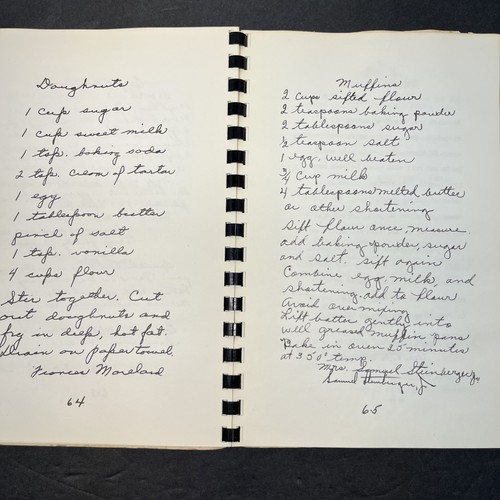 Doughnuts
1 cup sugar
1 cup sweet milk
1 tsp. baking soda
2 tsp. cream of tartar
1 egg
1 tablespoon butter
pinch of salt
1 tsp. vanilla
4 cups flour
Stir together. Cut
out doughnuts and
fry in deep, hot fat.
Drain on paper towel.
Frances Moreland
64
Muffins
2 cups sifted flour
2 teaspoons baking powder
2 tablespoons sugar
½ teaspoon salt
1 egg, well beaten
¾ cup milk
4 tablespoons melted butter
or other shortening
Sift flour once, measure
add baking powder, sugar
and salt, sift again
Combine egg, milk, and
shortening, add to flour
Avoid over mixing
Lift batter gently into
well greased muffin pans
Bake in oven 25 minutes
at 350° temp.
Mrs. Samuel Steinberger, Jr.
Samuel Steinberger, Jr.
65